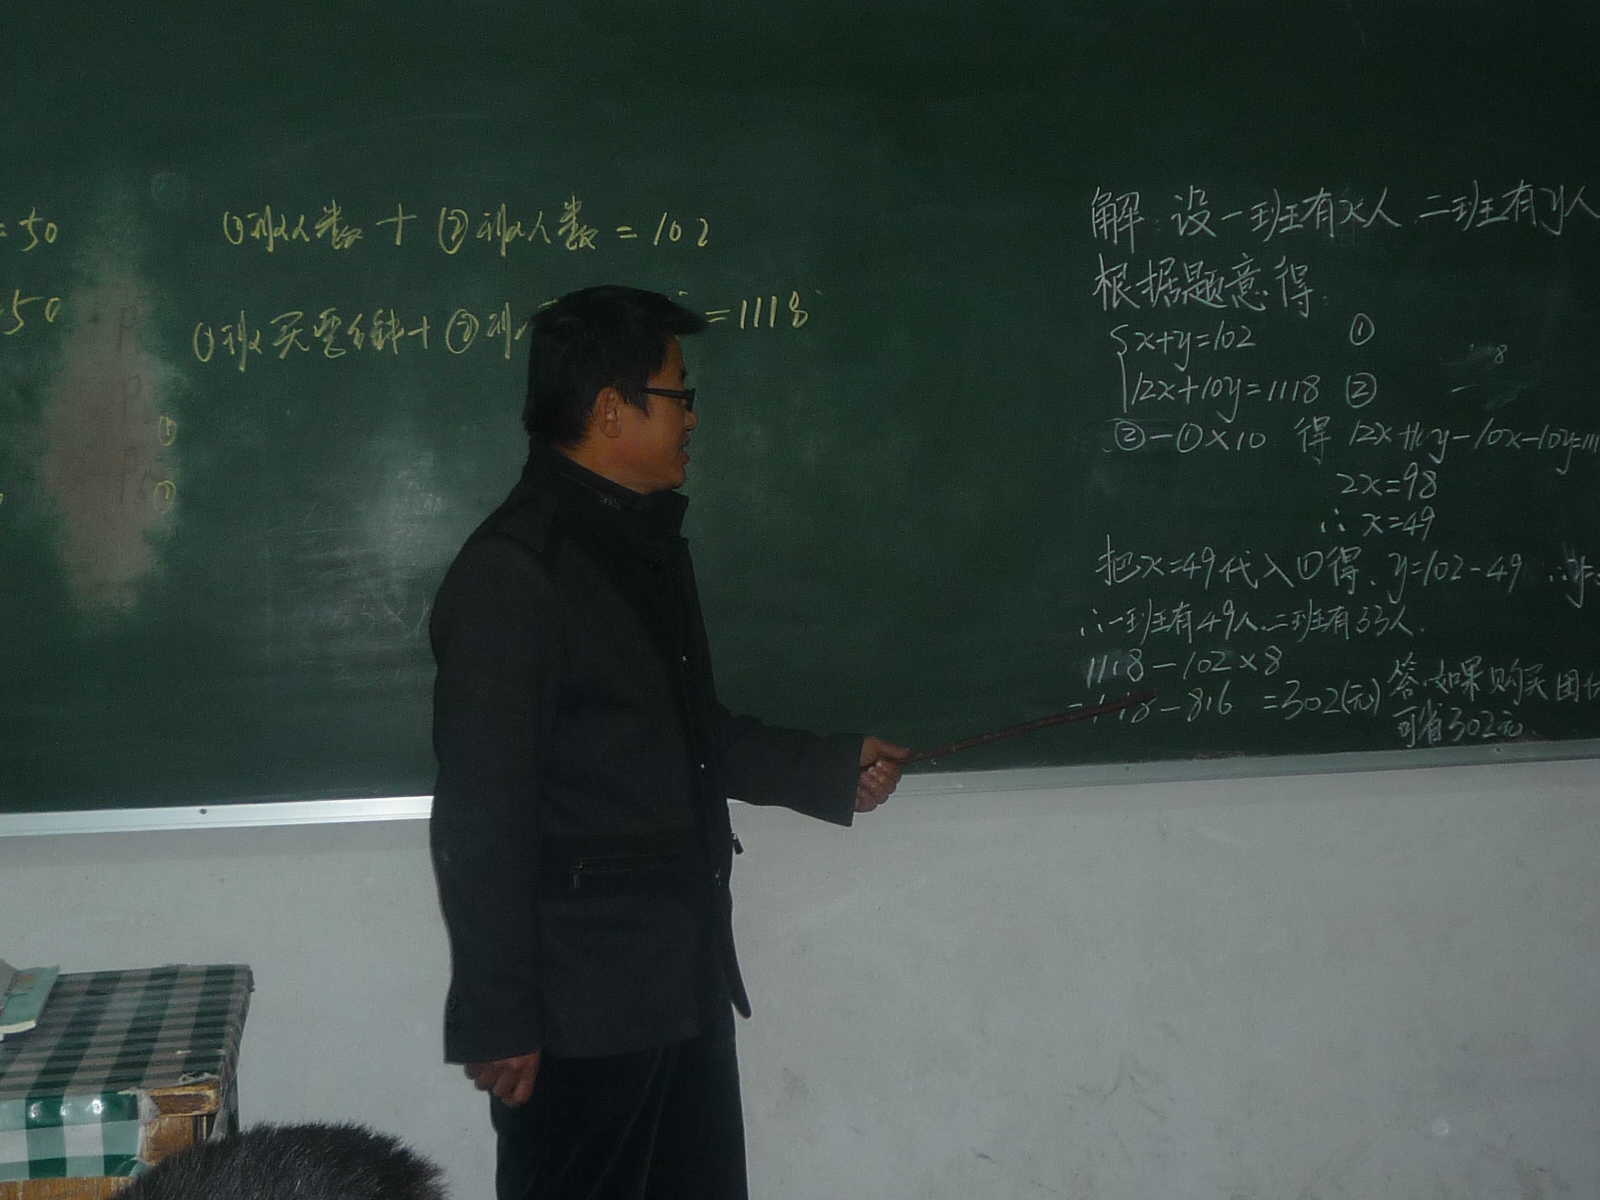 =50
50
①班人数 + ②班人数 = 102
①班买票钱 + ②班 =1118
①
①
解:设一班有x人 二班有y人
根据题意得:
{x+y=102 ①
12x+10y=1118 ②
②-①×10 得 12x+10y-10x-10y=111
2x=98
∴ x=49
把x=49代入①得, y=102-49 ∴y=
∴一班有49人.二班有53人.
1118-102×8
=1118-816 =302(元) 答:如果购买团
可省302元